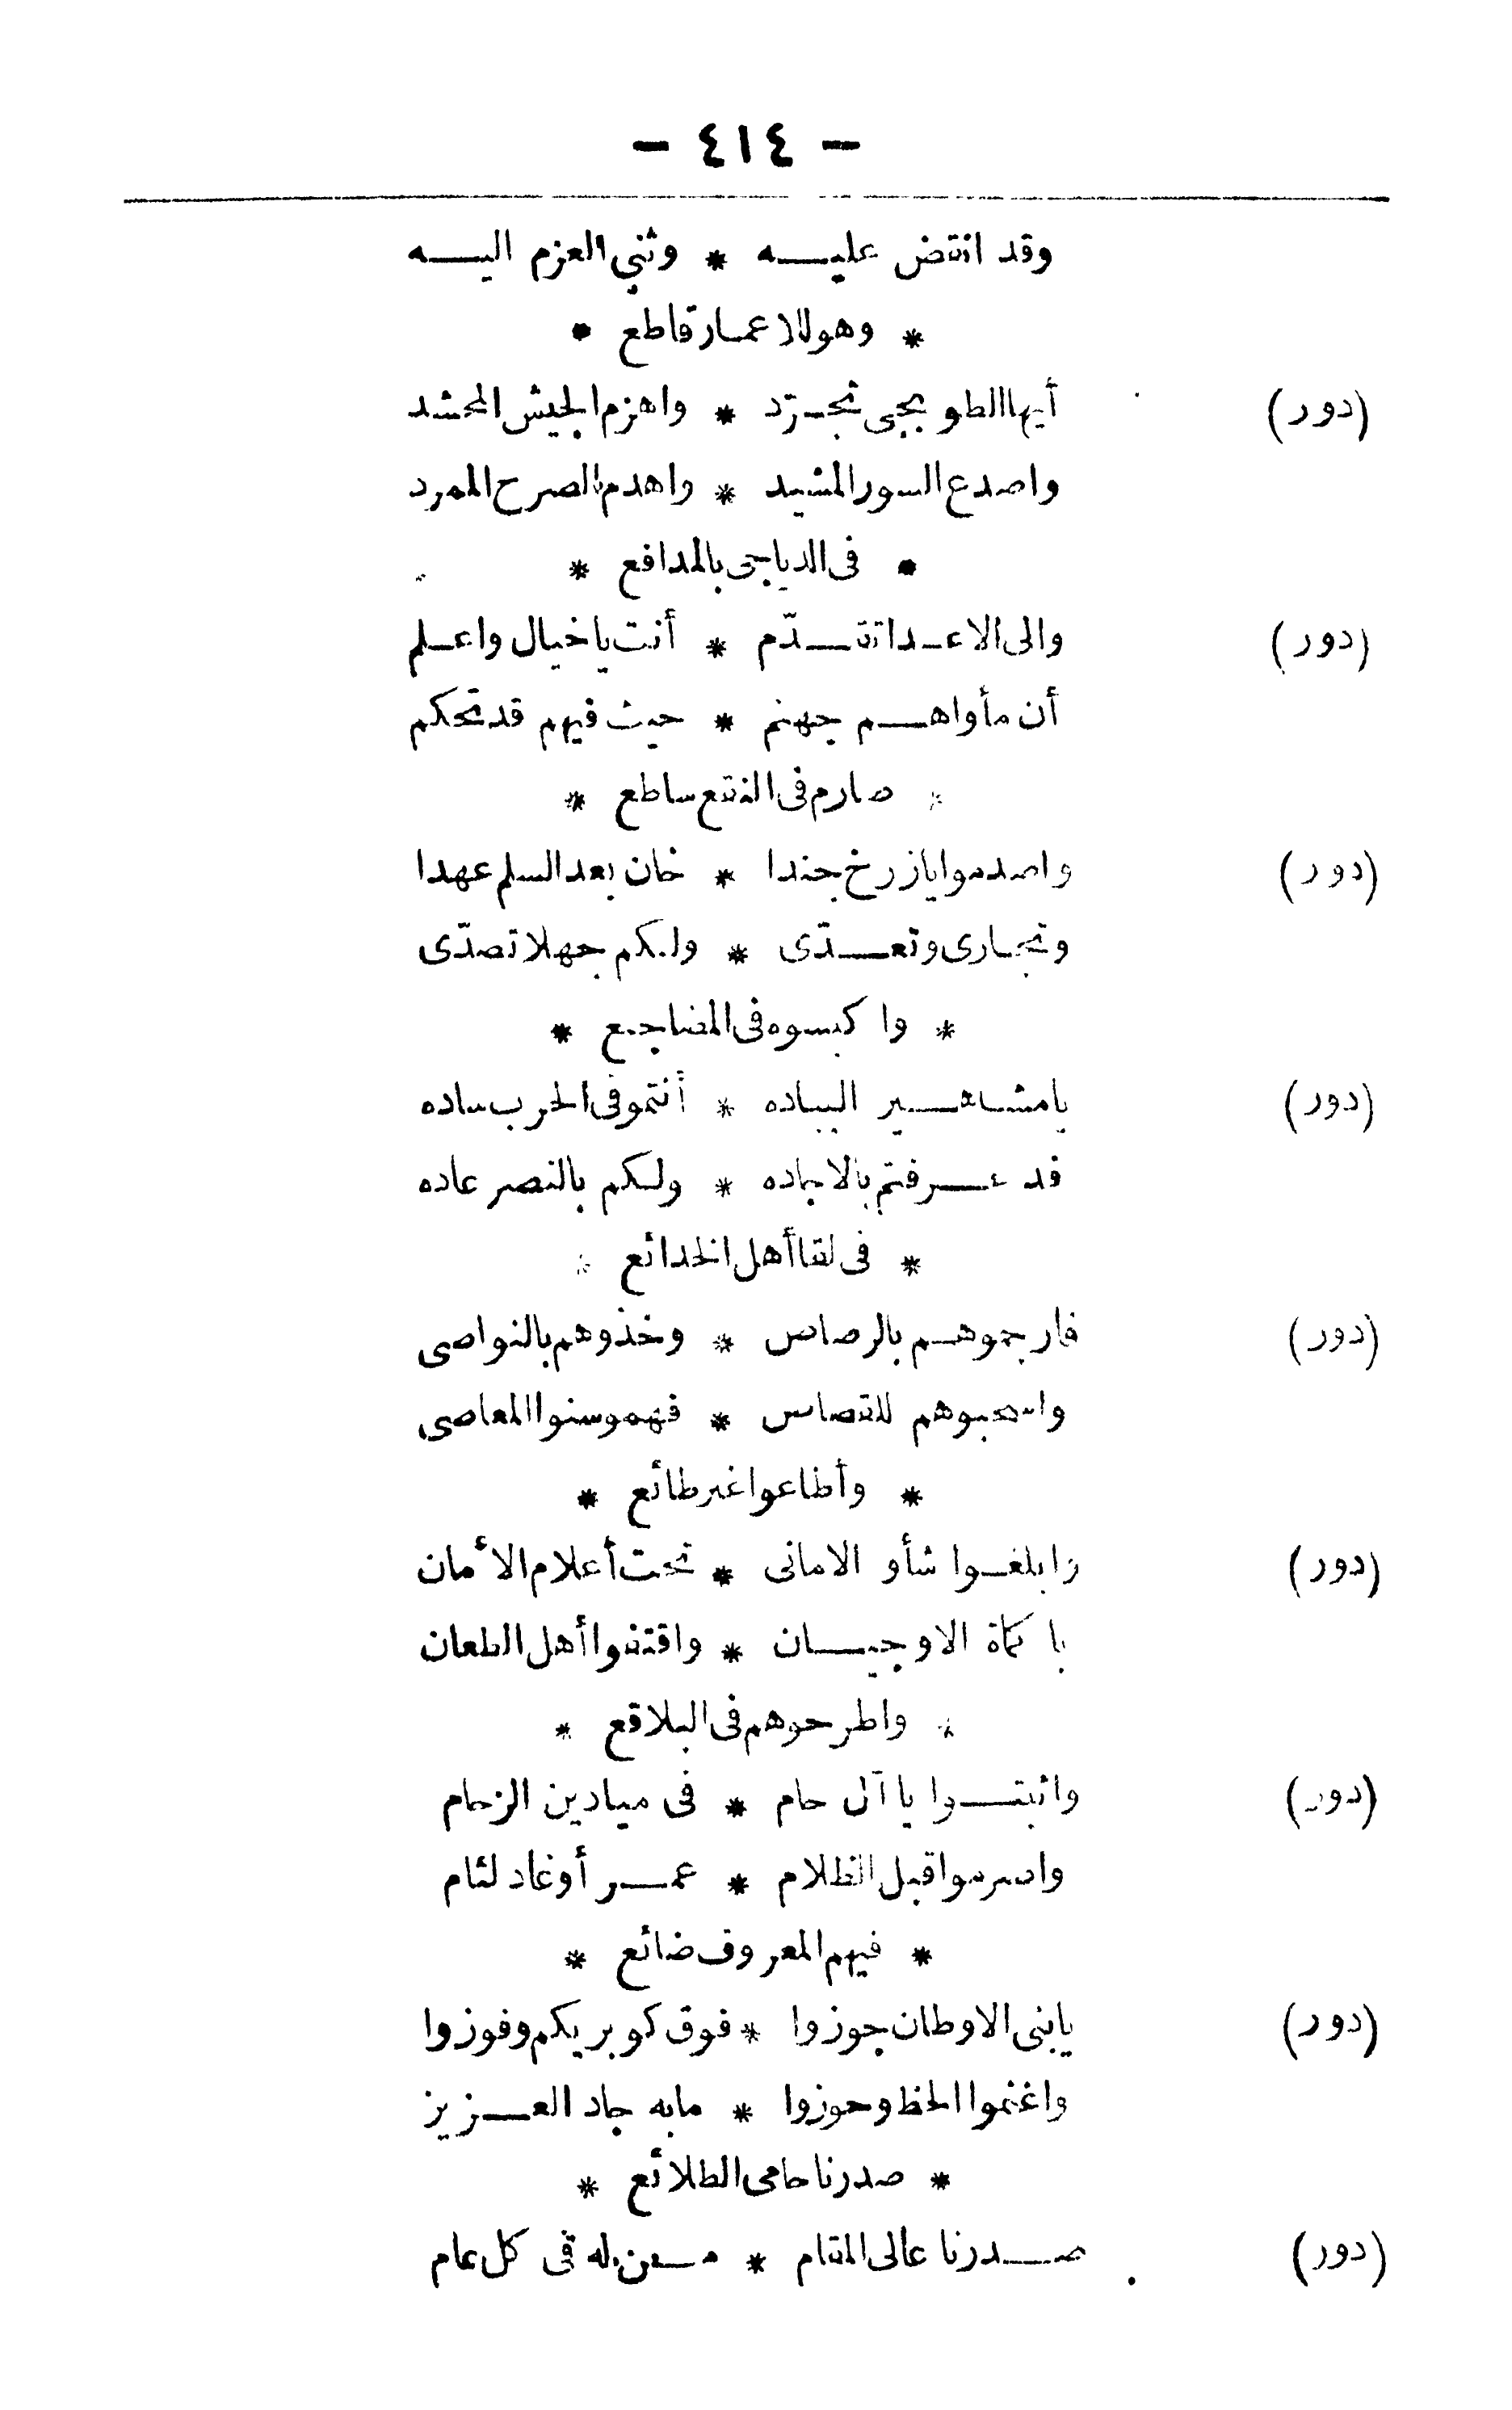 - ٤١٤ -
وقد انتقض عليه * وثنى العزم اليه
* وهو للاعمار قاطع *
(دور) أيها الطوبجى تجرّد * واهزم الجيش المحشد
واصدع السور المشيد * واهدم الصرح الممرد
* فى الدياجى بالمدافع *
(دور) والى الاعدا تقدّم * أنت ياخيال واعلم
أن مأواهم جهنم * حيث فيهم قد تحكم
* صارم فى النقع ساطع *
(دور) واصدموا يازرخ جندا * خان بعد السلم عهدا
وتجارى وتعدّى * ولكم جهلا تصدّى
* واكبسوه فى المضاجع *
(دور) يامشاهير البياده * أنتمو فى الحرب ساده
قد عرفتم بالاجاده * ولكم بالنصر عاده
* فى لقا أهل الخدائع *
(دور) فارجموهم بالرصاص * وخذوهم بالنواصى
واسحبوهم للقصاص * فهمو سنوا المعاصى
* وأطاعوا غير طائع *
(دور) وابلغوا شأو الامانى * تحت أعلام الأمان
يا كماة الاوجيان * واقتفوا أهل الطعان
* واطرحوهم فى البلاقع *
(دور) واثبتوا يا آل حام * فى ميادين الزحام
واصرموا قبل الظلام * عمر أوغاد لئام
* فيهم المعروف ضائع *
(دور) يابنى الاوطان جوزوا * فوق كوبريكم وفوزوا
واغنموا الحظ وحوزوا * مابه جاد العزيز
* صدرنا حامى الطلائع *
(دور) صدرنا عالى المقام * من له فى كل عام